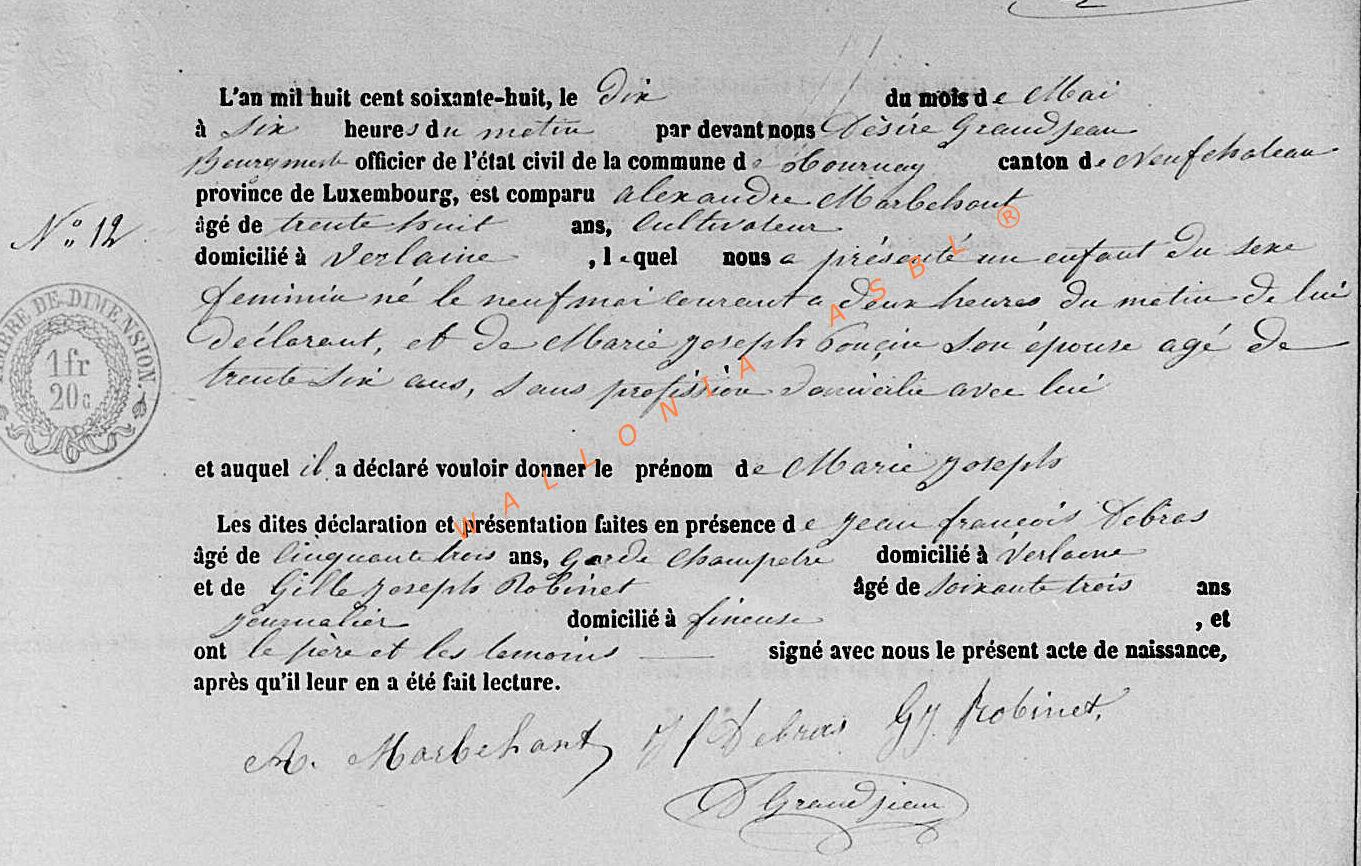 L'an mil huit cent soixante-huit, le dix du mois de Mai
à six heures du matin par devant nous Désiré Grandjean
Bourgmestre officier de l'état civil de la commune de Tournay canton de Neufchateau
province de Luxembourg, est comparu Alexandre Marbehant
N° 12
âgé de trente huit ans, Cultivateur
domicilié à Verlaine, lequel nous a présenté un enfant du sexe
feminin né le neuf mai courant a deux heures du matin de lui
déclarant, et de Marie Joseph Ponçin son épouse agé de
trente six ans, sans profission domicilie avec lui
TIMBRE DE DIMENSION.
1 fr
20 c
et auquel il a déclaré vouloir donner le prénom de Marie Joseph
Les dites déclaration et présentation faites en présence de Jean françois Debras
âgé de Cinquante trois ans, Garde Champetre domicilié à Verlaine
et de Gille Joseph Robinet âgé de soixante trois ans
Journalier domicilié à fineuse, et
ont le père et les temoins signé avec nous le présent acte de naissance,
après qu'il leur en a été fait lecture.
A. Marbehant J f Debras G J. Robinet,
D Grandjean
WALLONIA ASBL ®